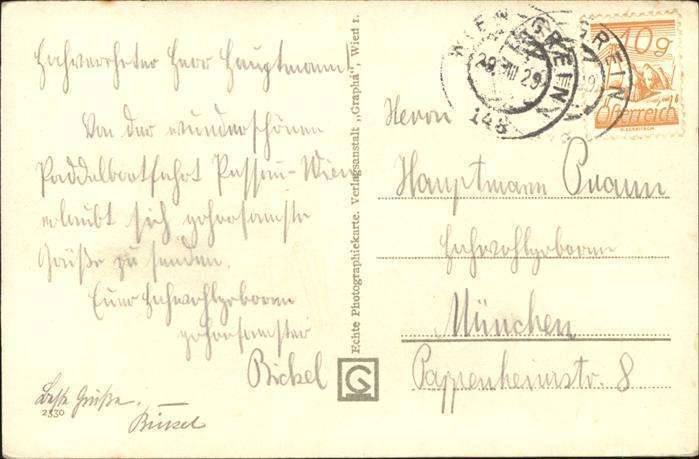 Hochverehrter Herr Hauptmann!
Von der wunderschönen
Paddelbootfahrt Passau-Wien
erlaubt sich gehorsamste
Grüße zu senden.
Euer Hochwohlgeboren
gehorsamster
Bickel
Beste Grüße.
2330
Echte Photographiekarte. Verlagsanstalt „Grapha", Wien 1.
G
GREIN
GREIN
148
10g
Österreich
Herrn
Hauptmann
Hochwohlgeboren
München
Pappenheimstr. 8